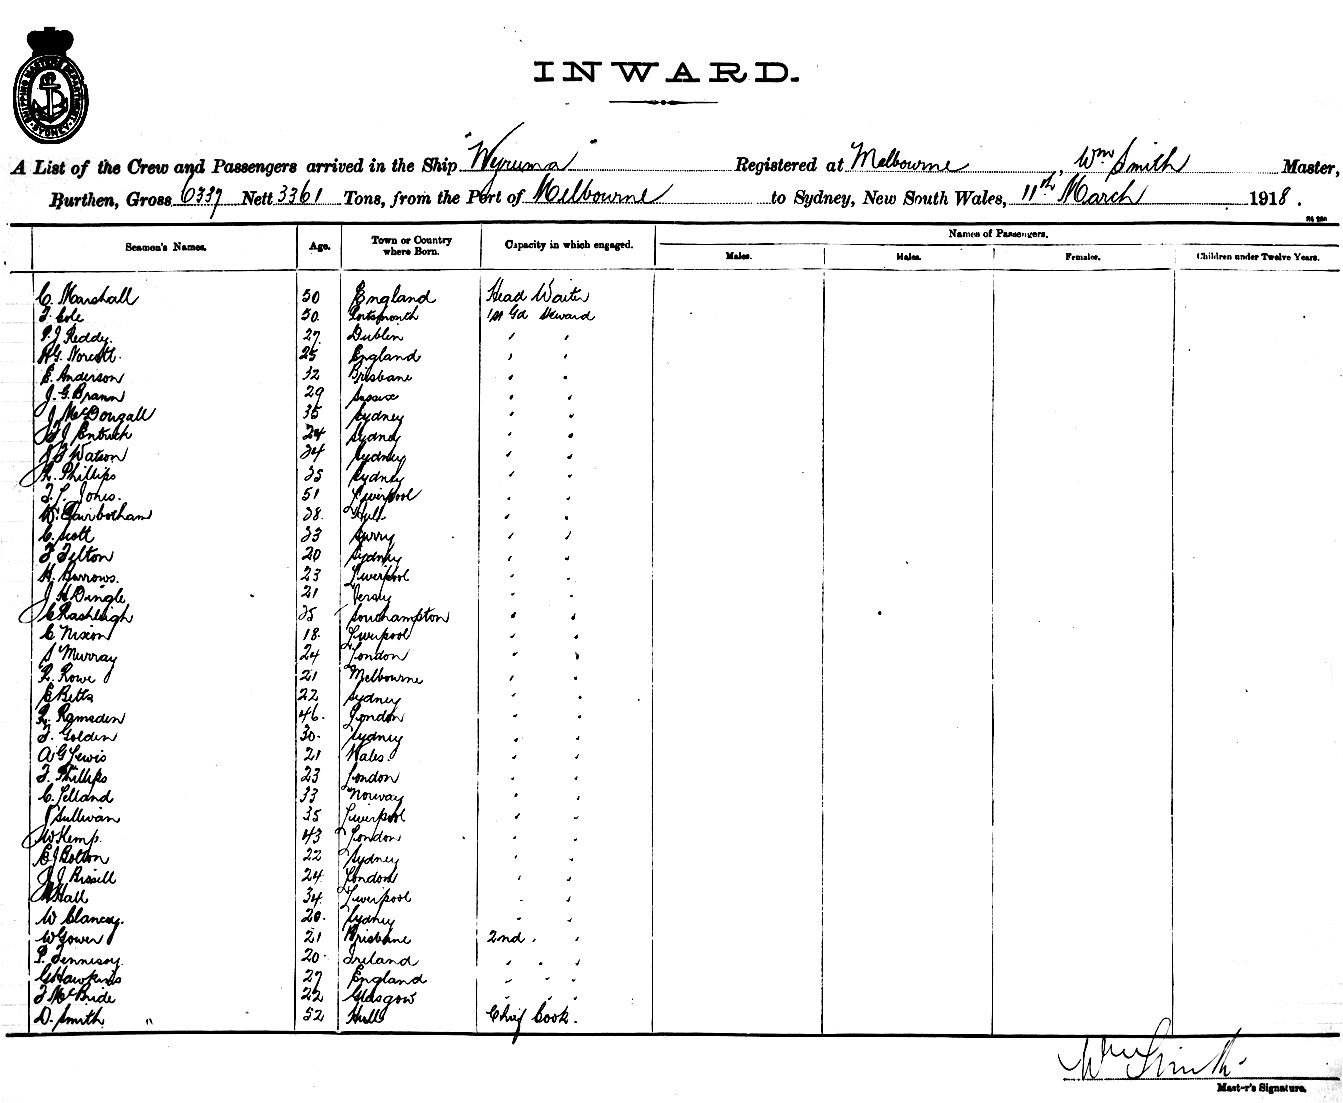 SHIPPING MASTER'S DEPARTMENT SYDNEY
INWARD.
A List of the Crew and Passengers arrived in the Ship "Wyruna" Registered at Melbourne, Wm Smith Master,
Burthen, Gross 6337 Nett 3361 Tons, from the Port of Melbourne to Sydney, New South Wales, 11th March 1918.
Seamen's Names. Age. Town or Country where Born. Capacity in which engaged. Names of Passengers.
Males. Males. Females. Children under Twelve Years.
C. Marshall 50 England Head Waiter
F. Cole 50. Portsmouth 1st Gd Steward
P.J Reddy. 27 Dublin " "
H.G. Norcott. 25 England " "
E. Anderson 32 Brisbane " "
J. G. Brann 29 Sussex " "
J McDougall 35 Sydney " "
24 Sydney " "
Watson 24 Sydney " "
R. Phillips 35 Sydney " "
F. L. Jones. 51 Liverpool " "
W. Fairbotham 38. Hull " "
C. Scott 33 Surry " "
F Felton 20 Sydney " "
H. Burrows. 23 Liverpool " "
J H Dingle 21 Jersey " "
C Rashleigh 35 Southampton " "
C Nixon 18. Liverpool " "
S Murray 24 London " "
R. Rowe 21 Melbourne " "
E Betts 22 Sydney " "
R. Ramsden 46. London " "
F. Golden 30. Sydney " "
A G Lewis 21 Wales. " "
F. Phillips 23 London " "
C. Lelland 33 Norway " "
J Sullivan 35 Liverpool " "
W Kemp. 43 London " "
E J Bolton 22 Sydney " "
J J Bissell 24 London " "
Hall 34. Liverpool " "
W Clancy. 20. Sydney " "
W Gower 21 Brisbane 2nd. "
P. Fennessy. 20. Ireland " " "
G Hawkins 27 England " " "
F McBride 22 Glasgow " " "
D. Smith " 52 Hull Chief Cook.
Wm Smith
Master's Signature.